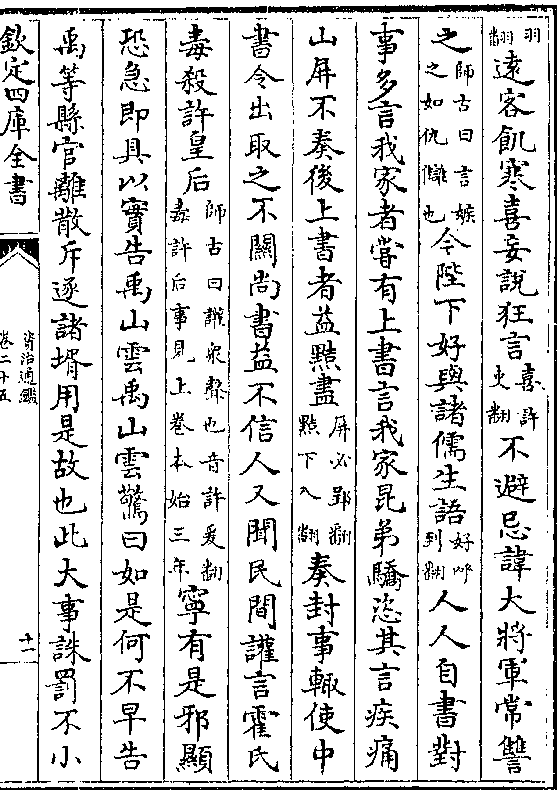 羽翻遠客飢寒喜妄說狂言喜許吏翻不避忌諱大將軍常讐
之師古曰言嫉之如仇讎也今陛下好與諸儒生語好呼到翻人人自書對
事多言我家者嘗有上書言我家昆弟驕恣其言疾痛
山屏不奏後上書者益黠盡屏必郢翻黠下八翻奏封事輒使中
書令出取之不關尚書益不信人又聞民間讙言霍氏
毒殺許皇后師古曰讙衆聲也音許爰翻毒許后事見上卷本始三年寧有是邪顯
恐急即具以實告禹山雲禹山雲驚曰如是何不早告
禹等縣官離散斥逐諸壻用是故也此大事誅罰不小
欽定四庫全書
資治通鑑
卷二十五
十一